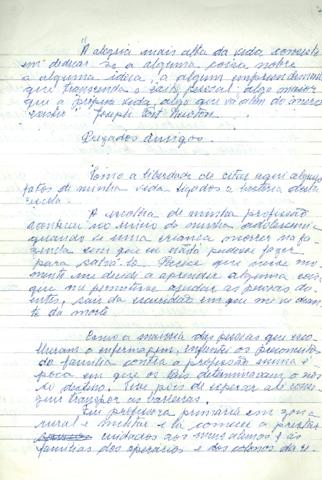 "A alegria mais alta da vida consiste
em dedicar-se a alguma coisa nobre
a alguma ideia, a algum empreendimento
que transcenda o ser pessoal, algo maior
que a própria vida, algo que vá além do
Joseph Fort Newton
Prezados amigos.
Tomo a liberdade de citar aqui alguns
fatos de minha vida ligados a história desta
escola.
A escolha de minha profissão
aconteceu no início da minha adolescência
quando vi uma criança morrer na
sem que eu nada pudesse fazer
para salvá-la. Parece que nesse mo-
mento me decidi a aprender alguma coisa
que me permitisse ajudar as pessoas do-
entes, sair da em que me vi dian-
te da morte.
Como a maioria das pessoas que esco-
lheram a enfermagem, enfrentei os preconceitos
da família contra a profissão numa é-
poca em que os pais determinavam o nos-
so destino. Tive pois de esperar até conse-
guir transpor as barreiras.
Fui professora primária em zona
rural e lá comecei a prestar
cuidados aos meus alunos e às
famílias dos operários e dos colonos da